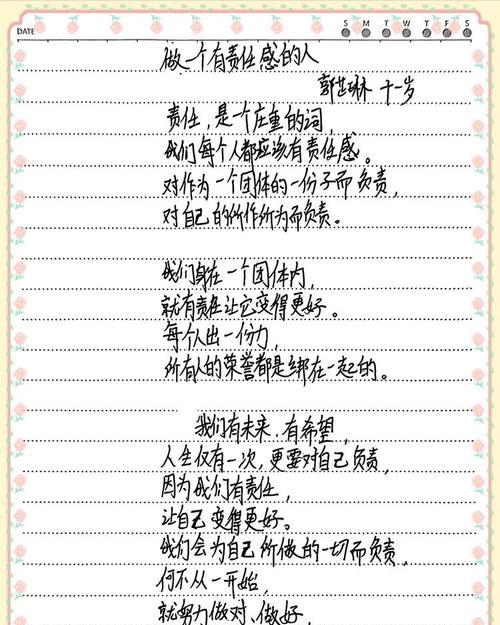 DATE
S M T W T F S
做一个有责任感的人
郭芷琳 十一岁
责任，是一个庄重的词，
我们每个人都应该有责任感。
对作为一个团体的一份子而负责，
对自己的所作所为而负责。
我们身在一个团体内，
就有责任让它变得更好。
每个人出一份力，
所有人的荣誉都是绑在一起的。
我们有未来，有希望，
人生仅有一次，更要对自己负责，
因为我们有责任，
让自己变得更好。
我们会为自己所做的一切而负责，
何不从一开始，
就努力做对、做好，